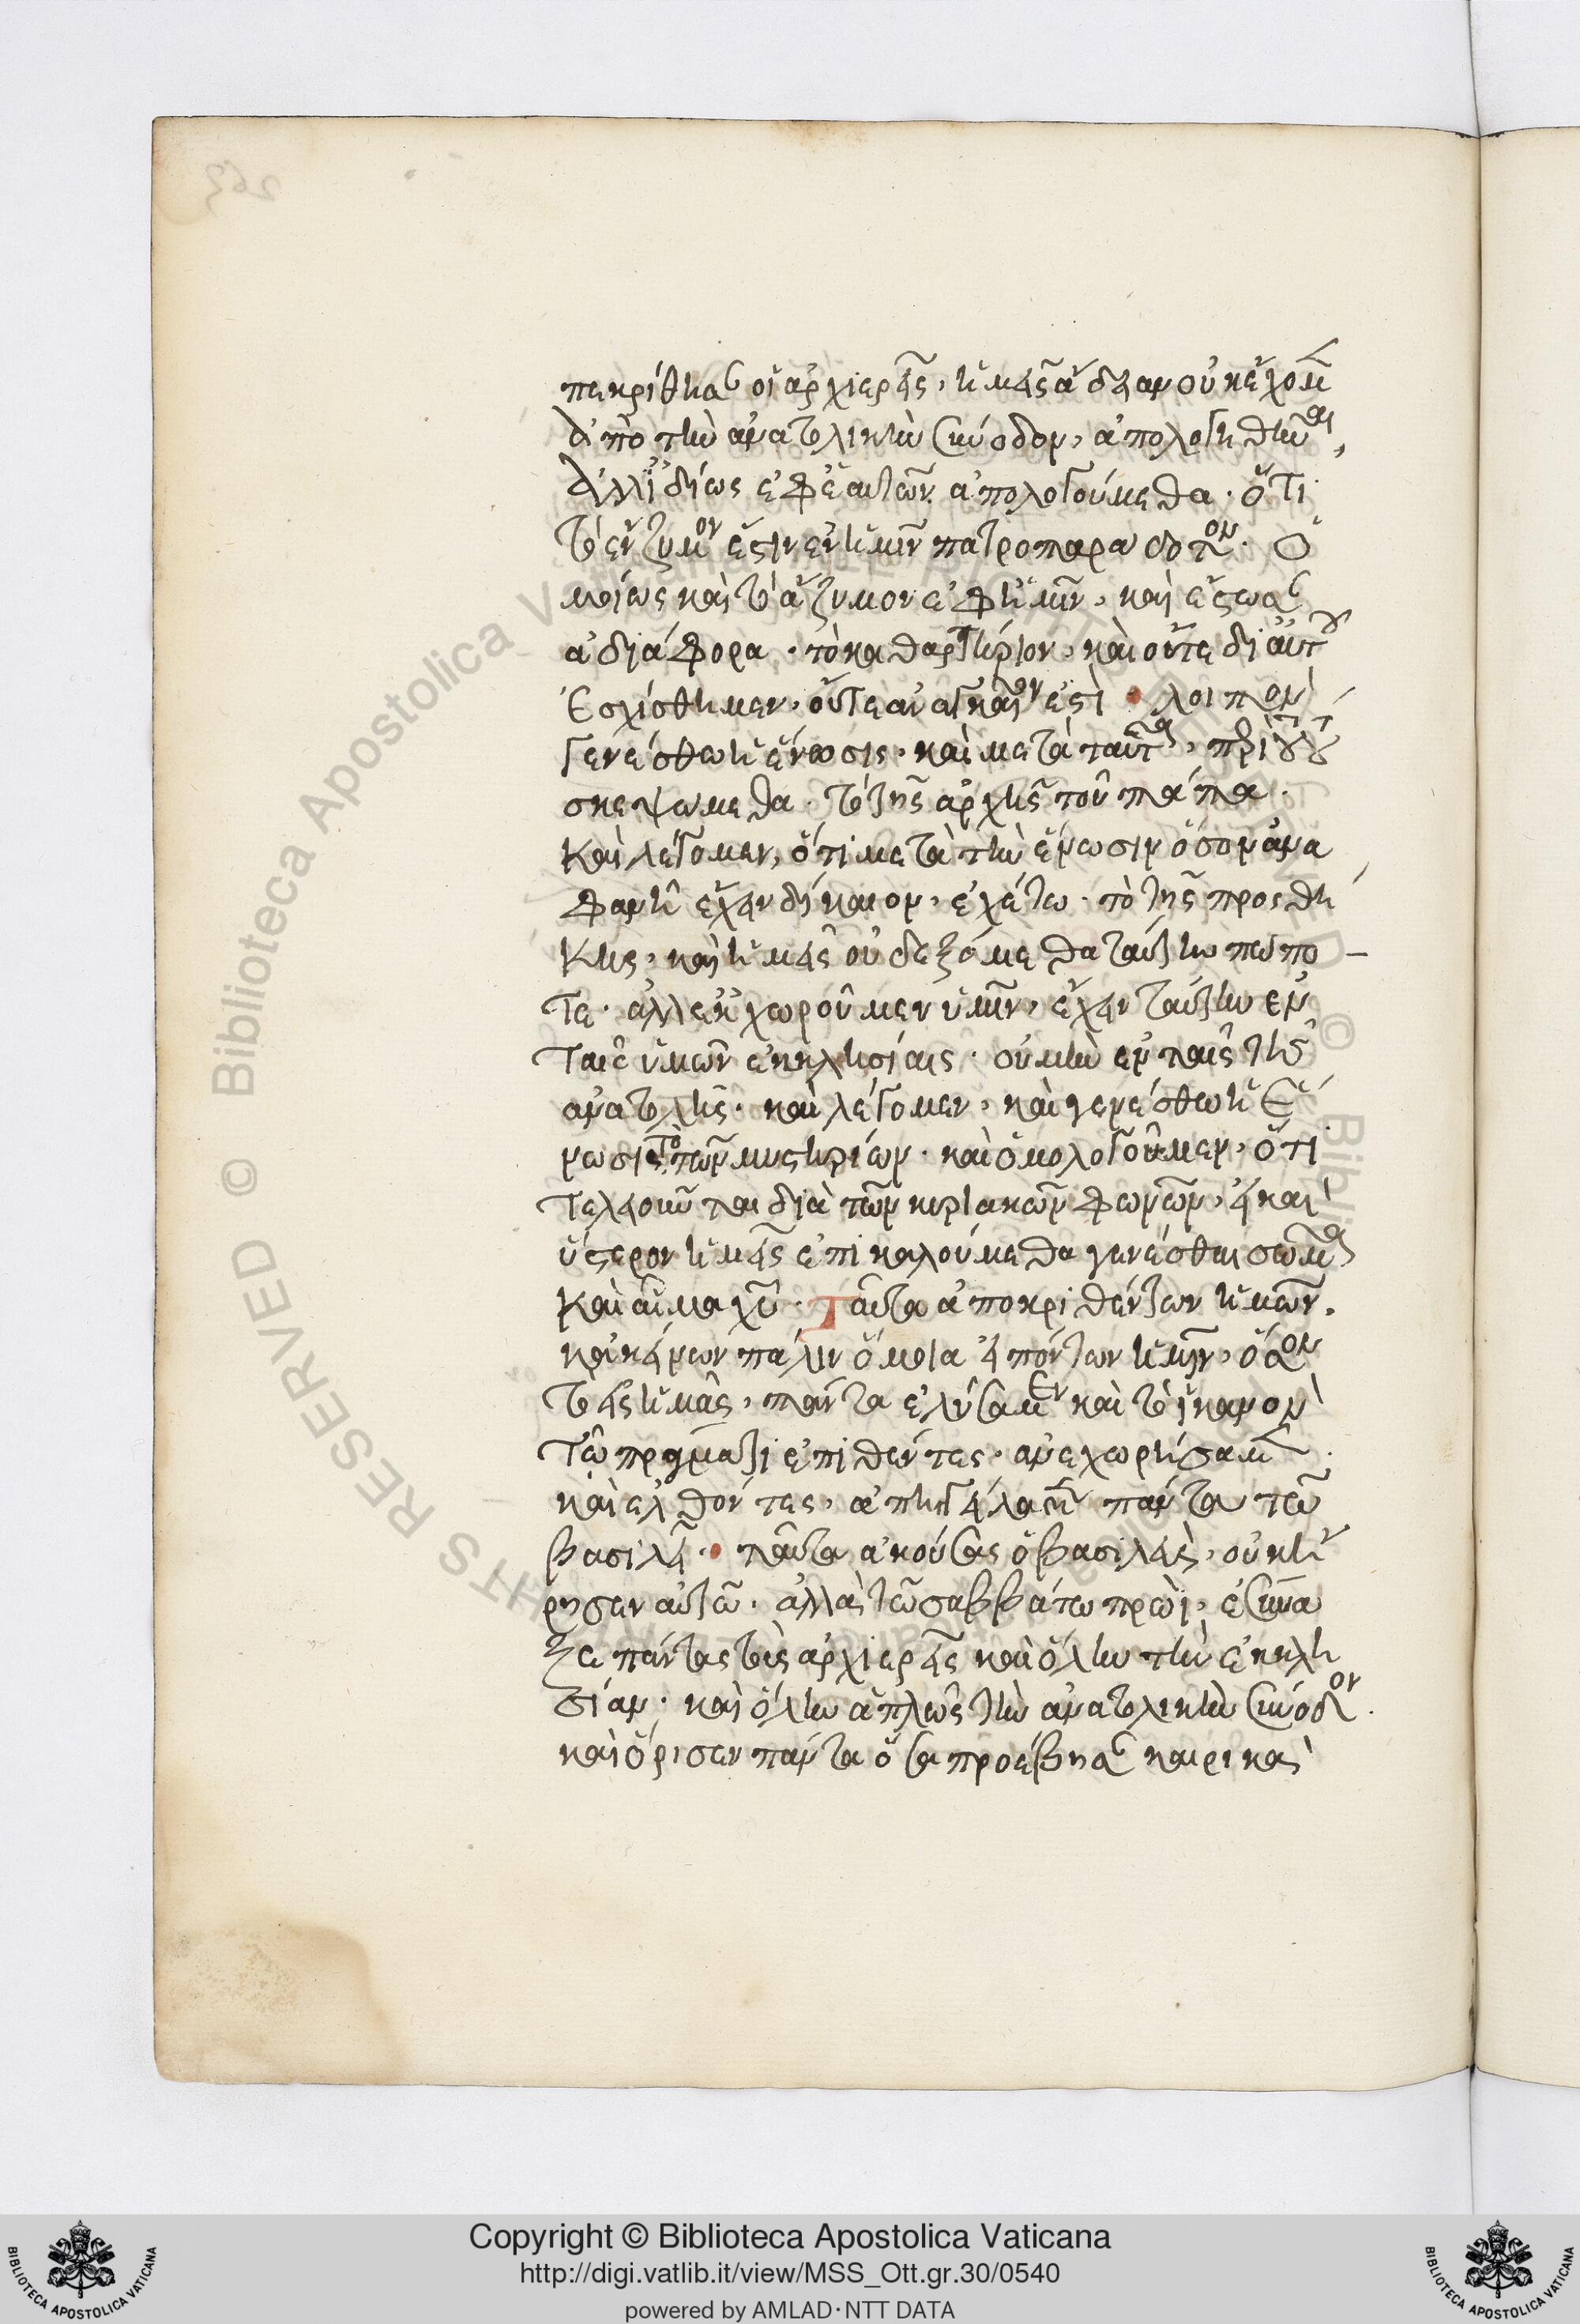 πεκρίθησαν οἱ ἀρχιερεῖς, ἡμεῖς ἄδειαν οὐκ ἔχομεν
ἀπὸ τὴν ἀνατολικὴν σύνοδον, ἀπολογηθῆναι,
ἀλλ' ἰδίως ἐφ' ἑαυτῶν ἀπολογούμεθα. ὅτι
τὸ ἔνζυμον ἔστιν ἐν ἡμῖν πατροπαράδοτον. ὁ
μοίως καὶ τὸ ἄζυμον ἐφ' ἡμῖν, καὶ ἔστωσαν
ἀδιάφορα. τὸ καθαρτήριον, καὶ οὔτε δι' αὐτοῦ
ἐσχίσθημεν, οὔτε ἀναγκαῖον ἐστὶ. λοιπὸν
γενέσθω ἡ ἕνωσις, καὶ μετὰ ταῦτα, περὶ τούτου
σκεψώμεθα. τὸ τῆς ἀρχῆς τοῦ πάπα.
καὶ λέγομεν, ὅτι μετὰ τὴν ἕνωσιν ὅσον ἀνα
φανῆ ἔχειν δίκαιον, ἐχέτω. τὸ τῆς προσθή
κης, καὶ ἡμεῖς οὐ δεξόμεθα ταύτην πώπο
τε. ἀλλ' ἐκχωροῦμεν ὑμῖν, ἔχειν ταύτην ἐν
ταῖς ὑμῶν ἐκκλησίαις. οὐ μὴν ἐν ταῖς τῆς
ἀνατολῆς. καὶ λέγομεν, καὶ γενέσθω ἡ ἕ
νωσις. τὸ τῶν μυστηρίων. καὶ ὁμολογοῦμεν, ὅτι
τελειοῦνται διὰ τῶν κυριακῶν φωνῶν, εἰ καὶ
ὕστερον ἡμεῖς ἐπικαλούμεθα γενέσθαι σῶμα
καὶ αἷμα χῦ. Ταῦτα ἀποκριθέντων ἡμῶν.
κἀκείνων πάλιν ὅμοια εἰπόντων ἡμῖν, ὅσον
τὸ εἰς ἡμᾶς, πάντα ἐλύσαμεν καὶ τὸ ἱκανὸν
τῷ πράγματι ἐπιθέντες, ἀνεχωρήσαμεν.
καὶ ἐλθόντες, ἀπηγγείλαμεν πάντα τῷ
βασιλεῖ. ταῦτα ἀκούσας ὁ βασιλεὺς, οὐκ ἤ
ρησεν αὐτῷ. ἀλλὰ τῷ σαββάτω πρωῒ, ἐσύνα
ξε πάντας τοὺς ἀρχιερεῖς καὶ ὅλην τὴν ἐκκλη
σίαν. καὶ ὅλην ἁπλῶς τὴν ἀνατολικὴν σύνοδον.
καὶ ὅρισεν πάντα ὅσα προέβησαν καιρικὰ
Copyright © Biblioteca Apostolica Vaticana
http://digi.vatlib.it/view/MSS_Ott.gr.30/0540
powered by AMLAD·NTT DATA